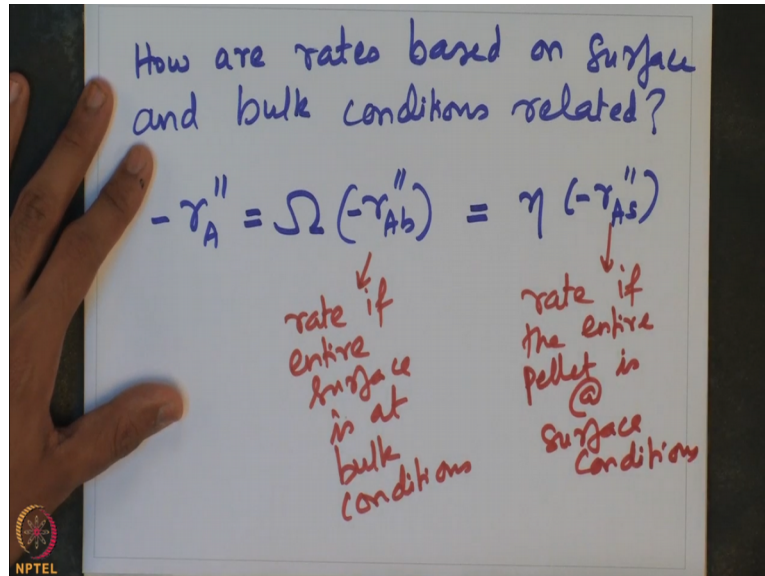 How are rates based on surface
and bulk conditions related?
-r_A'' = Ω (-r_Ab'') = η (-r_As'')
rate if
entire
surface
is at
bulk
conditions
rate if
the entire
pellet is
@
surface
conditions
NPTEL